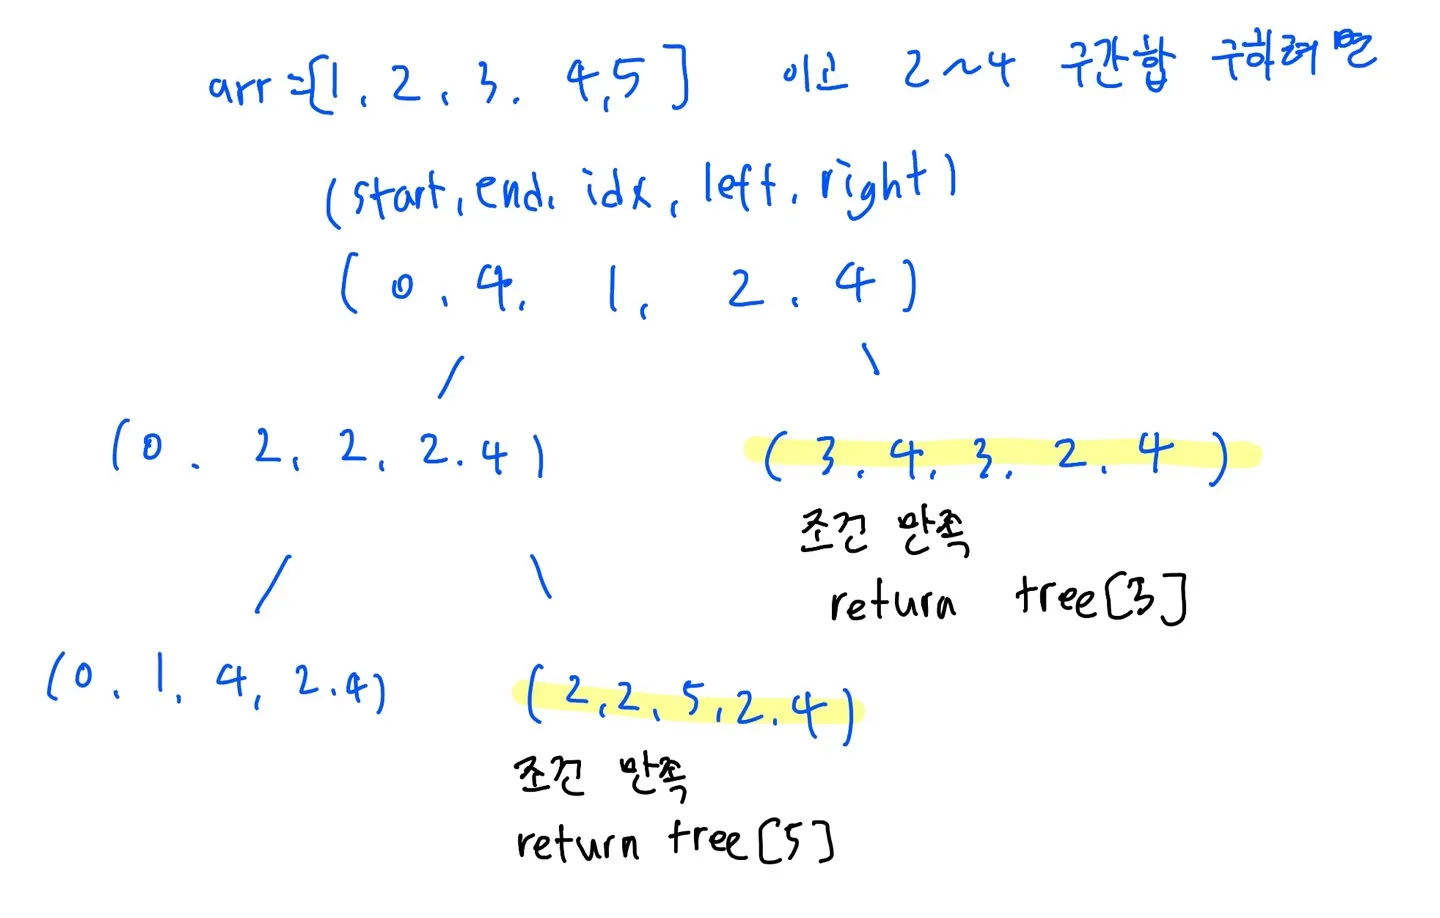 arr=[1, 2, 3. 4,5] 이고 2~4 구간합 구하려면
(start, end. idx, left. right)
(0. 4. 1, 2. 4)
/ \
(0. 2, 2, 2.4) (3. 4. 3. 2. 4)
조건 만족
return tree[3]
/ \
(0. 1, 4, 2.4) (2,2, 5,2.4)
조건 만족
return tree[5]